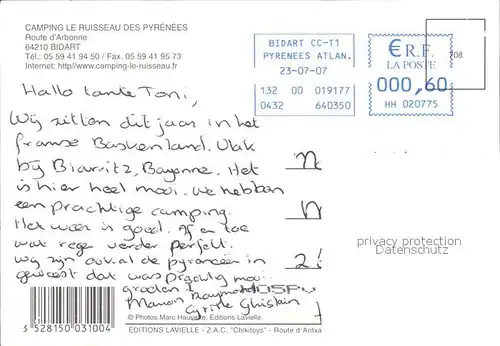 CAMPING LE RUISSEAU DES PYRÉNÉES
Route d'Arbonne
64210 BIDART
Tél.: 05 59 41 94 50 / Fax. 05 59 41 95 73
Internet: http//www.camping-le-ruisseau.fr
BIDART CC-T1
PYRENEES ATLAN.
23-07-07
132 00 019177
0432 640350
€ R.F.
LA POSTE
000,60
HH 020775
908
Hallo tante Toni,
Wij zitten dit jaar in het
franse Baskenland. Vlak
bij Biarritz, Bayonne. Het
is hier heel mooi. We hebben
een prachtige camping.
Het weer is goed. Af en toe
wat regen verder perfekt.
Wij zijn al de pyreneeën in
geweest dat was prachtig mooi
groeten
Manon Raymond
Cyrille Ghislain
privacy protection
Datenschutz
3 528150 031004
© Photos Marc Hauvette, Editions Lavielle.
EDITIONS LAVIELLE - Z.A.C. "Chikitoys" - Route d'Aritxa